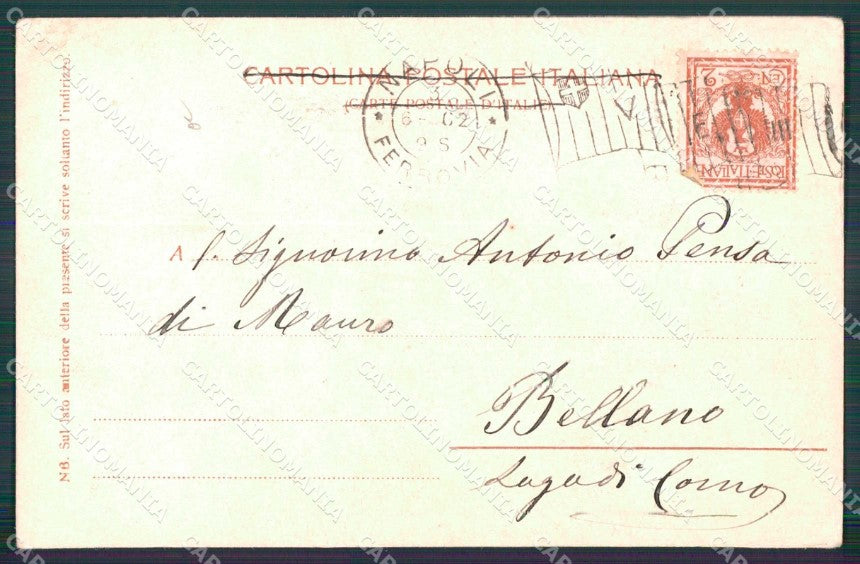 CARTOLINA POSTALE ITALIANA
(CARTE POSTALE D'ITALIE)
NAPOLI
6 - 02
9 S
* FERROVIA *
CEN 2
POSTE·ITALIANE
A l. Signorino Antonio Pensa
di Mauro
Bellano
Lago di Como
NB. Sul lato anteriore della presente si scrive soltanto l'indirizzo.
CARTOLINOMANIA